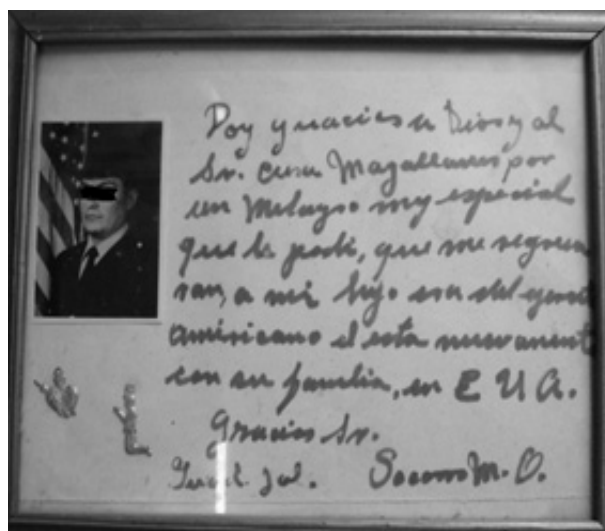 Doy gracias a Dios y al
Sr. cura Magallanes por
un Milagro muy especial
que le pedi, que me regresa
ran, a mi hijo era del
americano el esta nuevament
con su familia, en E U A.
Gracias Sr.
Guad. Jal. Socorro M. O.